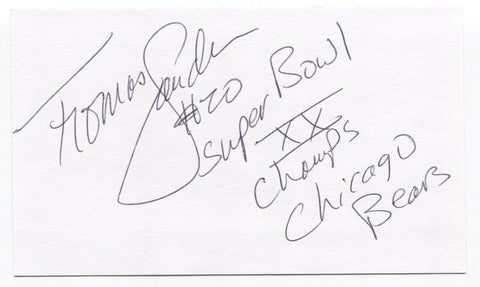 Thomas Sanders
#20
Super Bowl
XX
Champs
Chicago
Bears